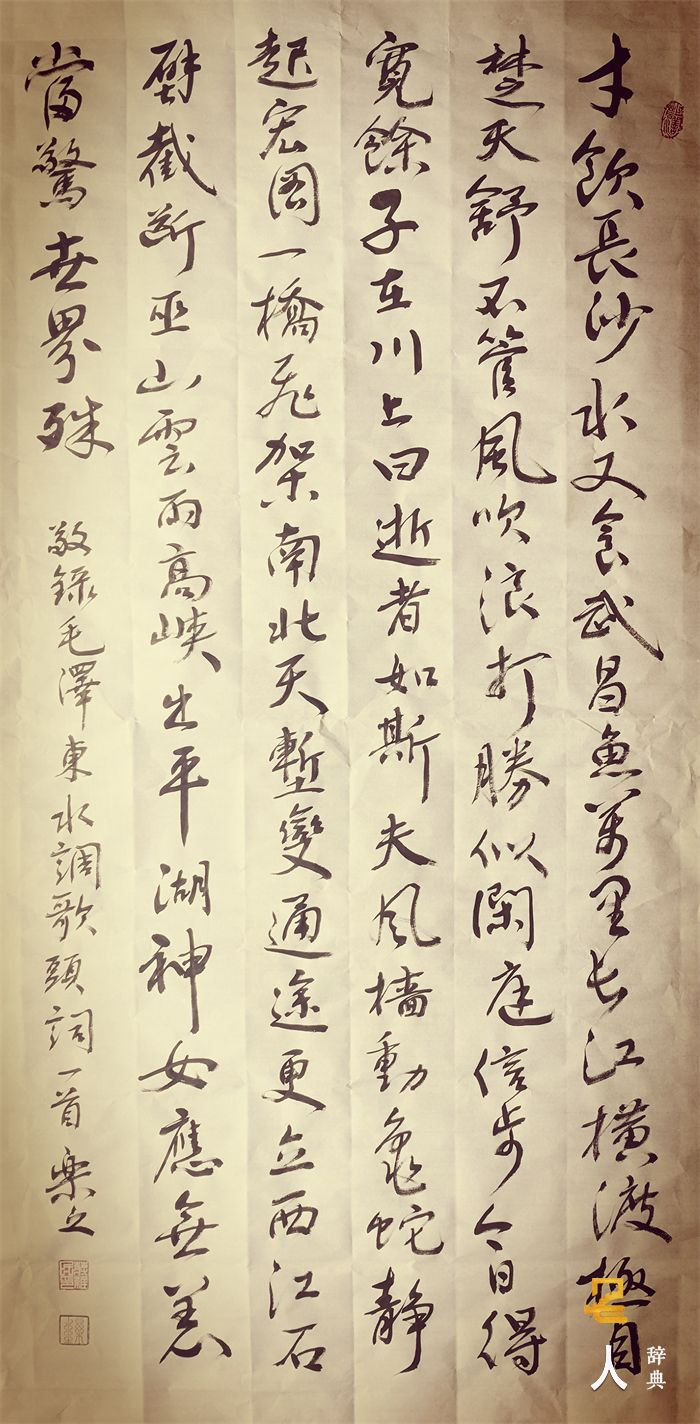 才飲長沙水又食武昌魚萬里长江横渡極目
楚天舒不管風吹浪打勝似閑庭信步今日得
寬餘子在川上曰逝者如斯夫风檣動龜蛇静
起宏图一橋飛架南北天塹變通途更立西江石
壁截断巫山雲雨高峽出平湖神女應無恙
當驚世界殊
敬錄毛澤東水調歌頭詞一首樂之
名人
辞典